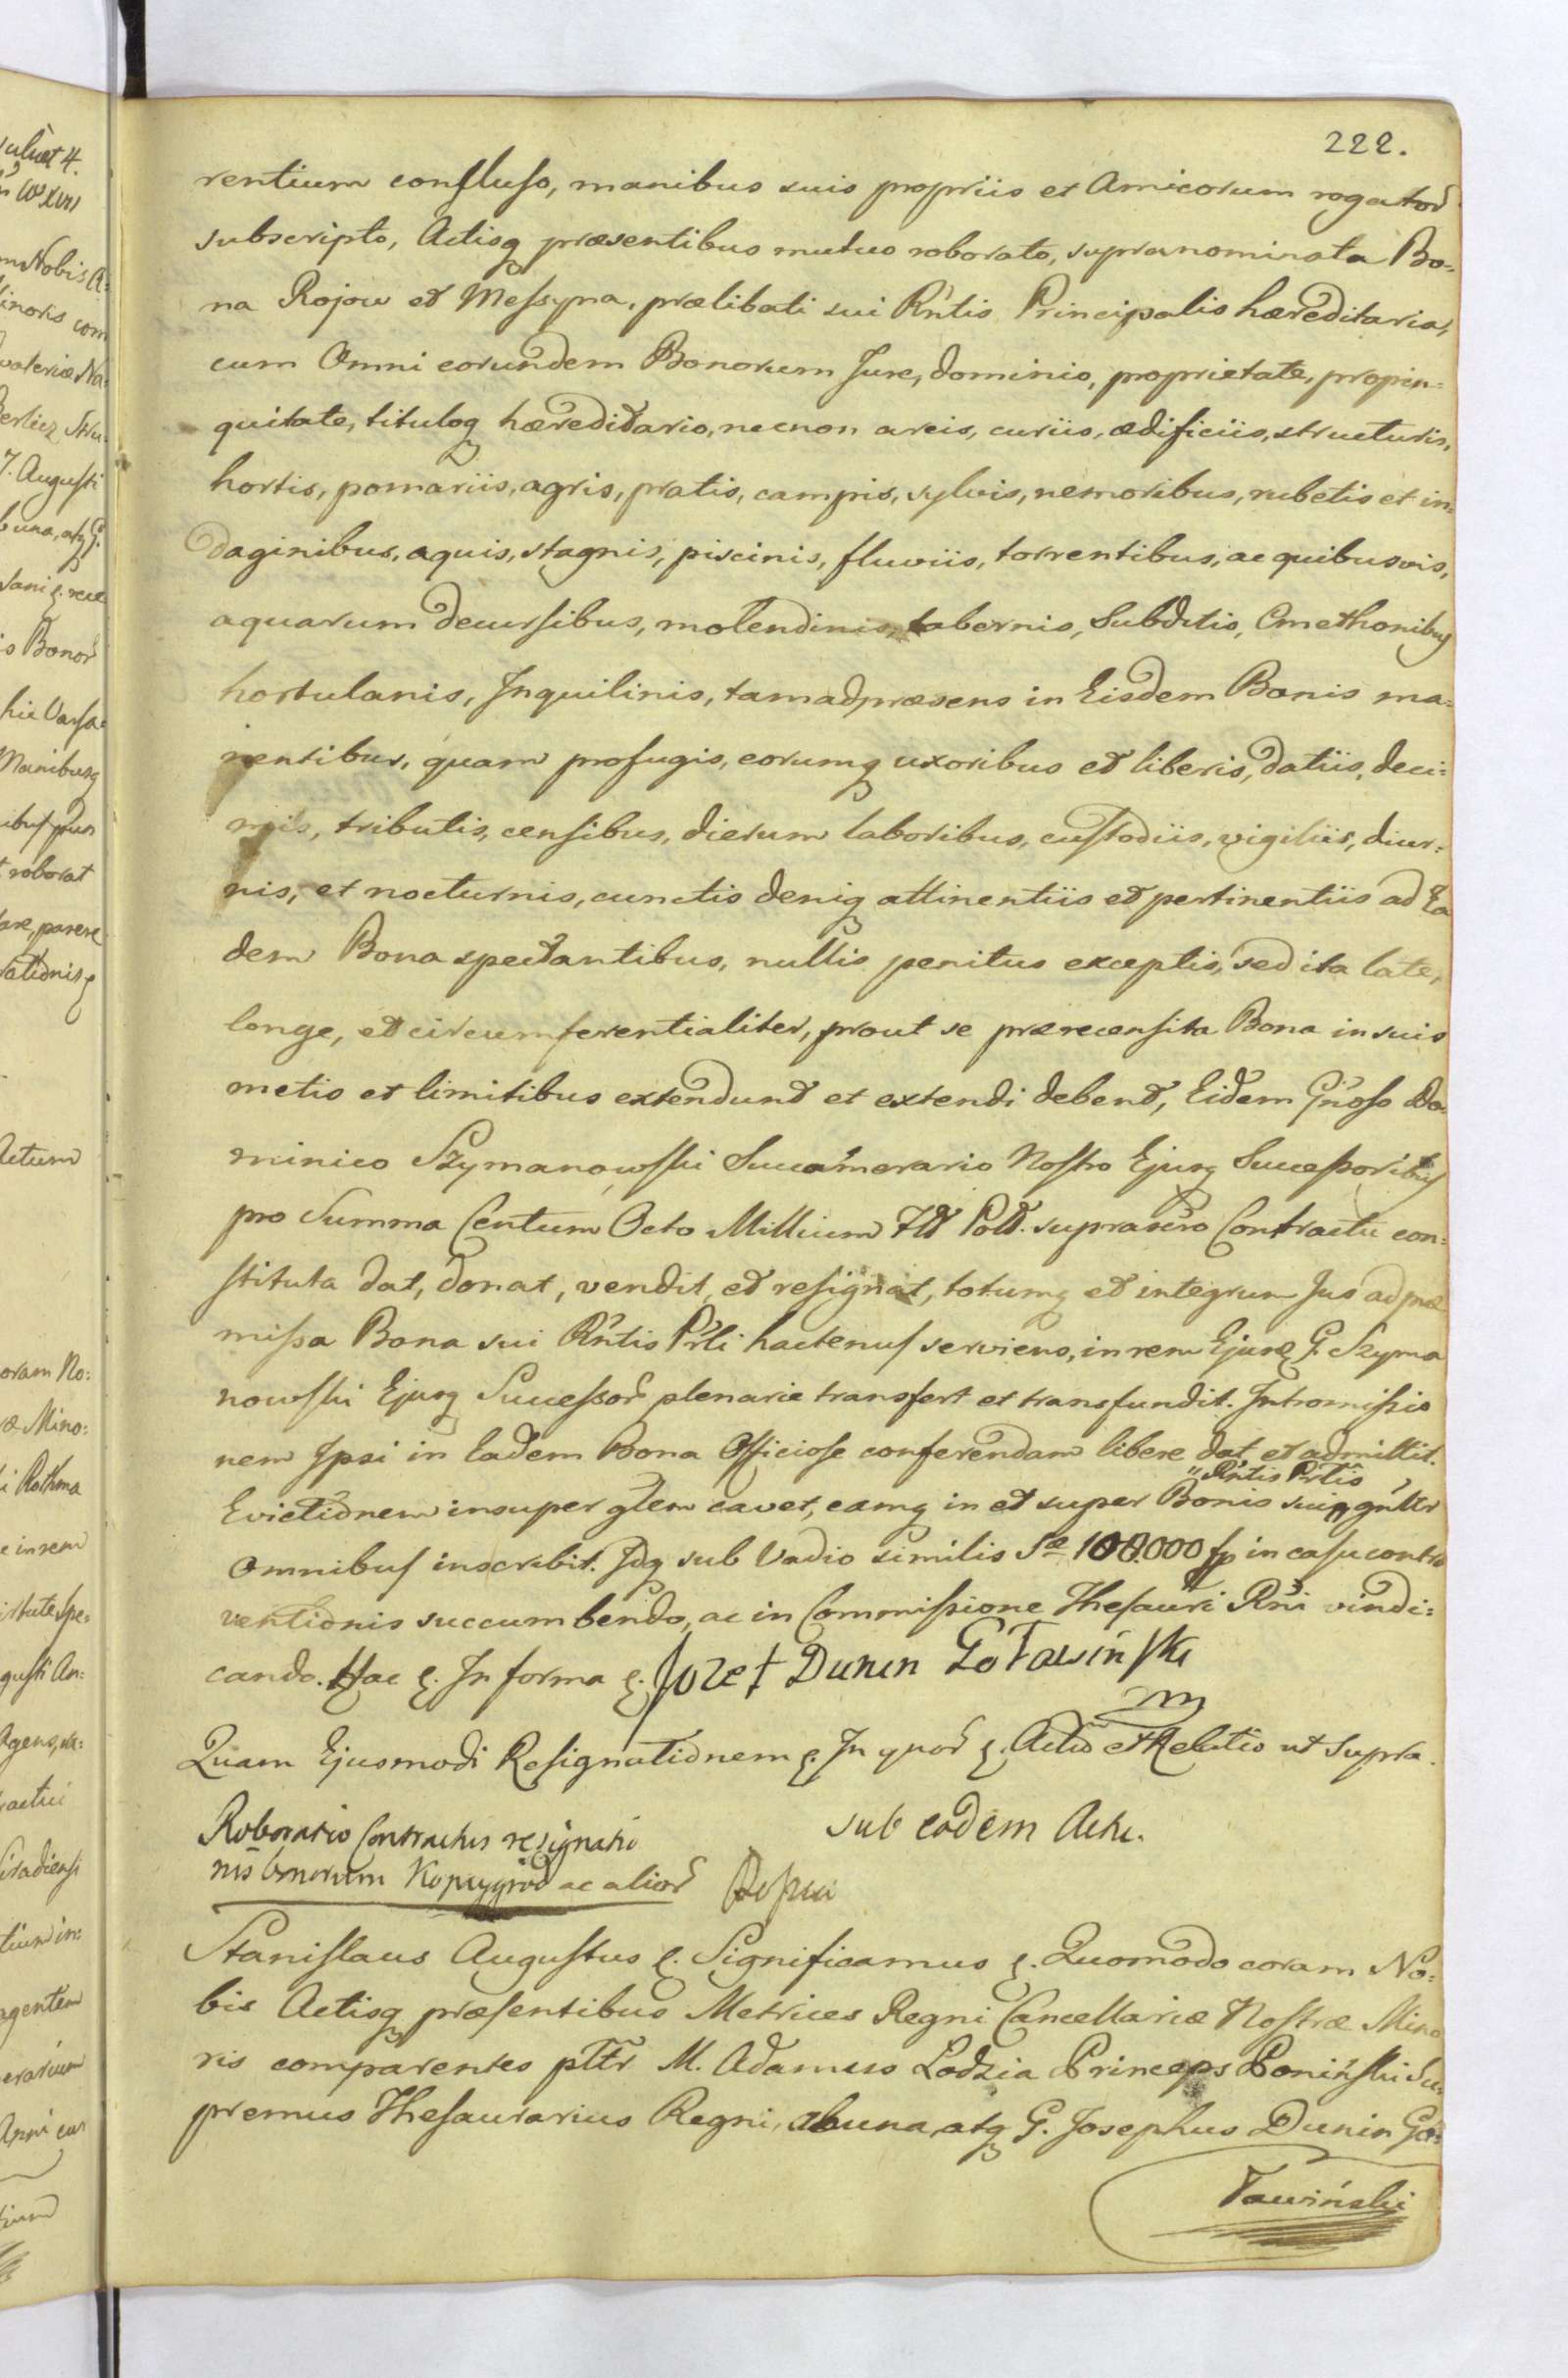 222.
rentium confluso, manibus suis propriis et Amicorum rogator
subscripto, Actisq præsentibus mutuo roborato, supranominata Bo=
na Rojow et Messyna, prælibati sui Rntis Principalis hæreditaria,
cum Omni eorundem Bonorum Jure, dominio, proprietate, propin=
quitate, tituloq hæreditario, necnon areis, curiis, ædificiis, structuris,
hortis, pomariis, agris, pratis, campis, sylvis, nemoribus, rubetis et in=
daginibus, aquis, stagnis, piscinis, fluviis, torrentibus, ac quibusvis,
aquarum decursibus, molendinis, tabernis, Subditis, Cmethonibus
hortulanis, Inquilinis, tam ad præsens in Eisdem Bonis ma=
nentibus, quam profugis, eorumq uxoribus et liberis, datiis, deci=
mis, tributis, censibus, dierum laboribus, custodiis, vigiliis, diur=
nis, et nocturnis, cunctis deniq attinentiis et pertinentiis ad Ea
dem Bona spectantibus, nullis penitus exceptis, sed ita late,
longe, et circumferentialiter, prout se prærecensita Bona in suis
metis et limitibus extendunt et extendi debent, Eidem Gnoso Do=
minico Szymanowski Succamerario Nostro Ejusq Successoribus
pro Summa Centum Octo Millium Fld Pold. suprascro Contractu con=
stituta dat, donat, vendit, et resignat, totumq et integrum Jus ad præ
missa Bona sui Rntis Prli hactenus serviens, in rem Ejusq G. Szyma
nowski Ejusq Successor plenarie transfert et transfundit. Intromissio
nem Ipsi in Eadem Bona Officiose conferendam libere dat et admittit.
" Rntis Prlis
Evictionem insuper glem cavet, eamq in et super Bonis sui " gnlter
Omnibus inscribit. Idq sub Vadio similis Sæ 108.000 fp in casu contra
ventionis succumbendo, ac in Commissione Thesauri Rni vindi=
cando. Hac &. In forma &. Jozef Dunin Gotawinski
mp
Quam Ejusmodi Resignationem &. In quor &. Actu et Relatio ut supra.
Roboratio Contractus resignatio
nis bonorum Kopuygrod ac alior
sub eodem Actu.
Stanislaus Augustus &. Significamus &. Quomodo coram No=
bis Actisq præsentibus Metrices Regni Cancellariæ Nostræ Mino
ris comparentes pltr M. Adamus Lodzia Princeps Poniński Su=
premus Thesaurarius Regni, ab una, atq G. Josephus Dunin Go=
Tawiński